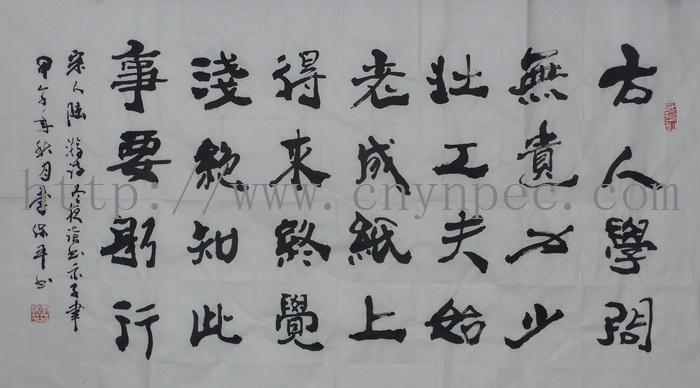 古人學問
無遺力少
壯工夫始
老成紙上
得來終覺
淺絶知此
事要躬行
宋人陸游詩冬夜讀書示子聿
甲午年秋月書
http://www.cnynpec.com